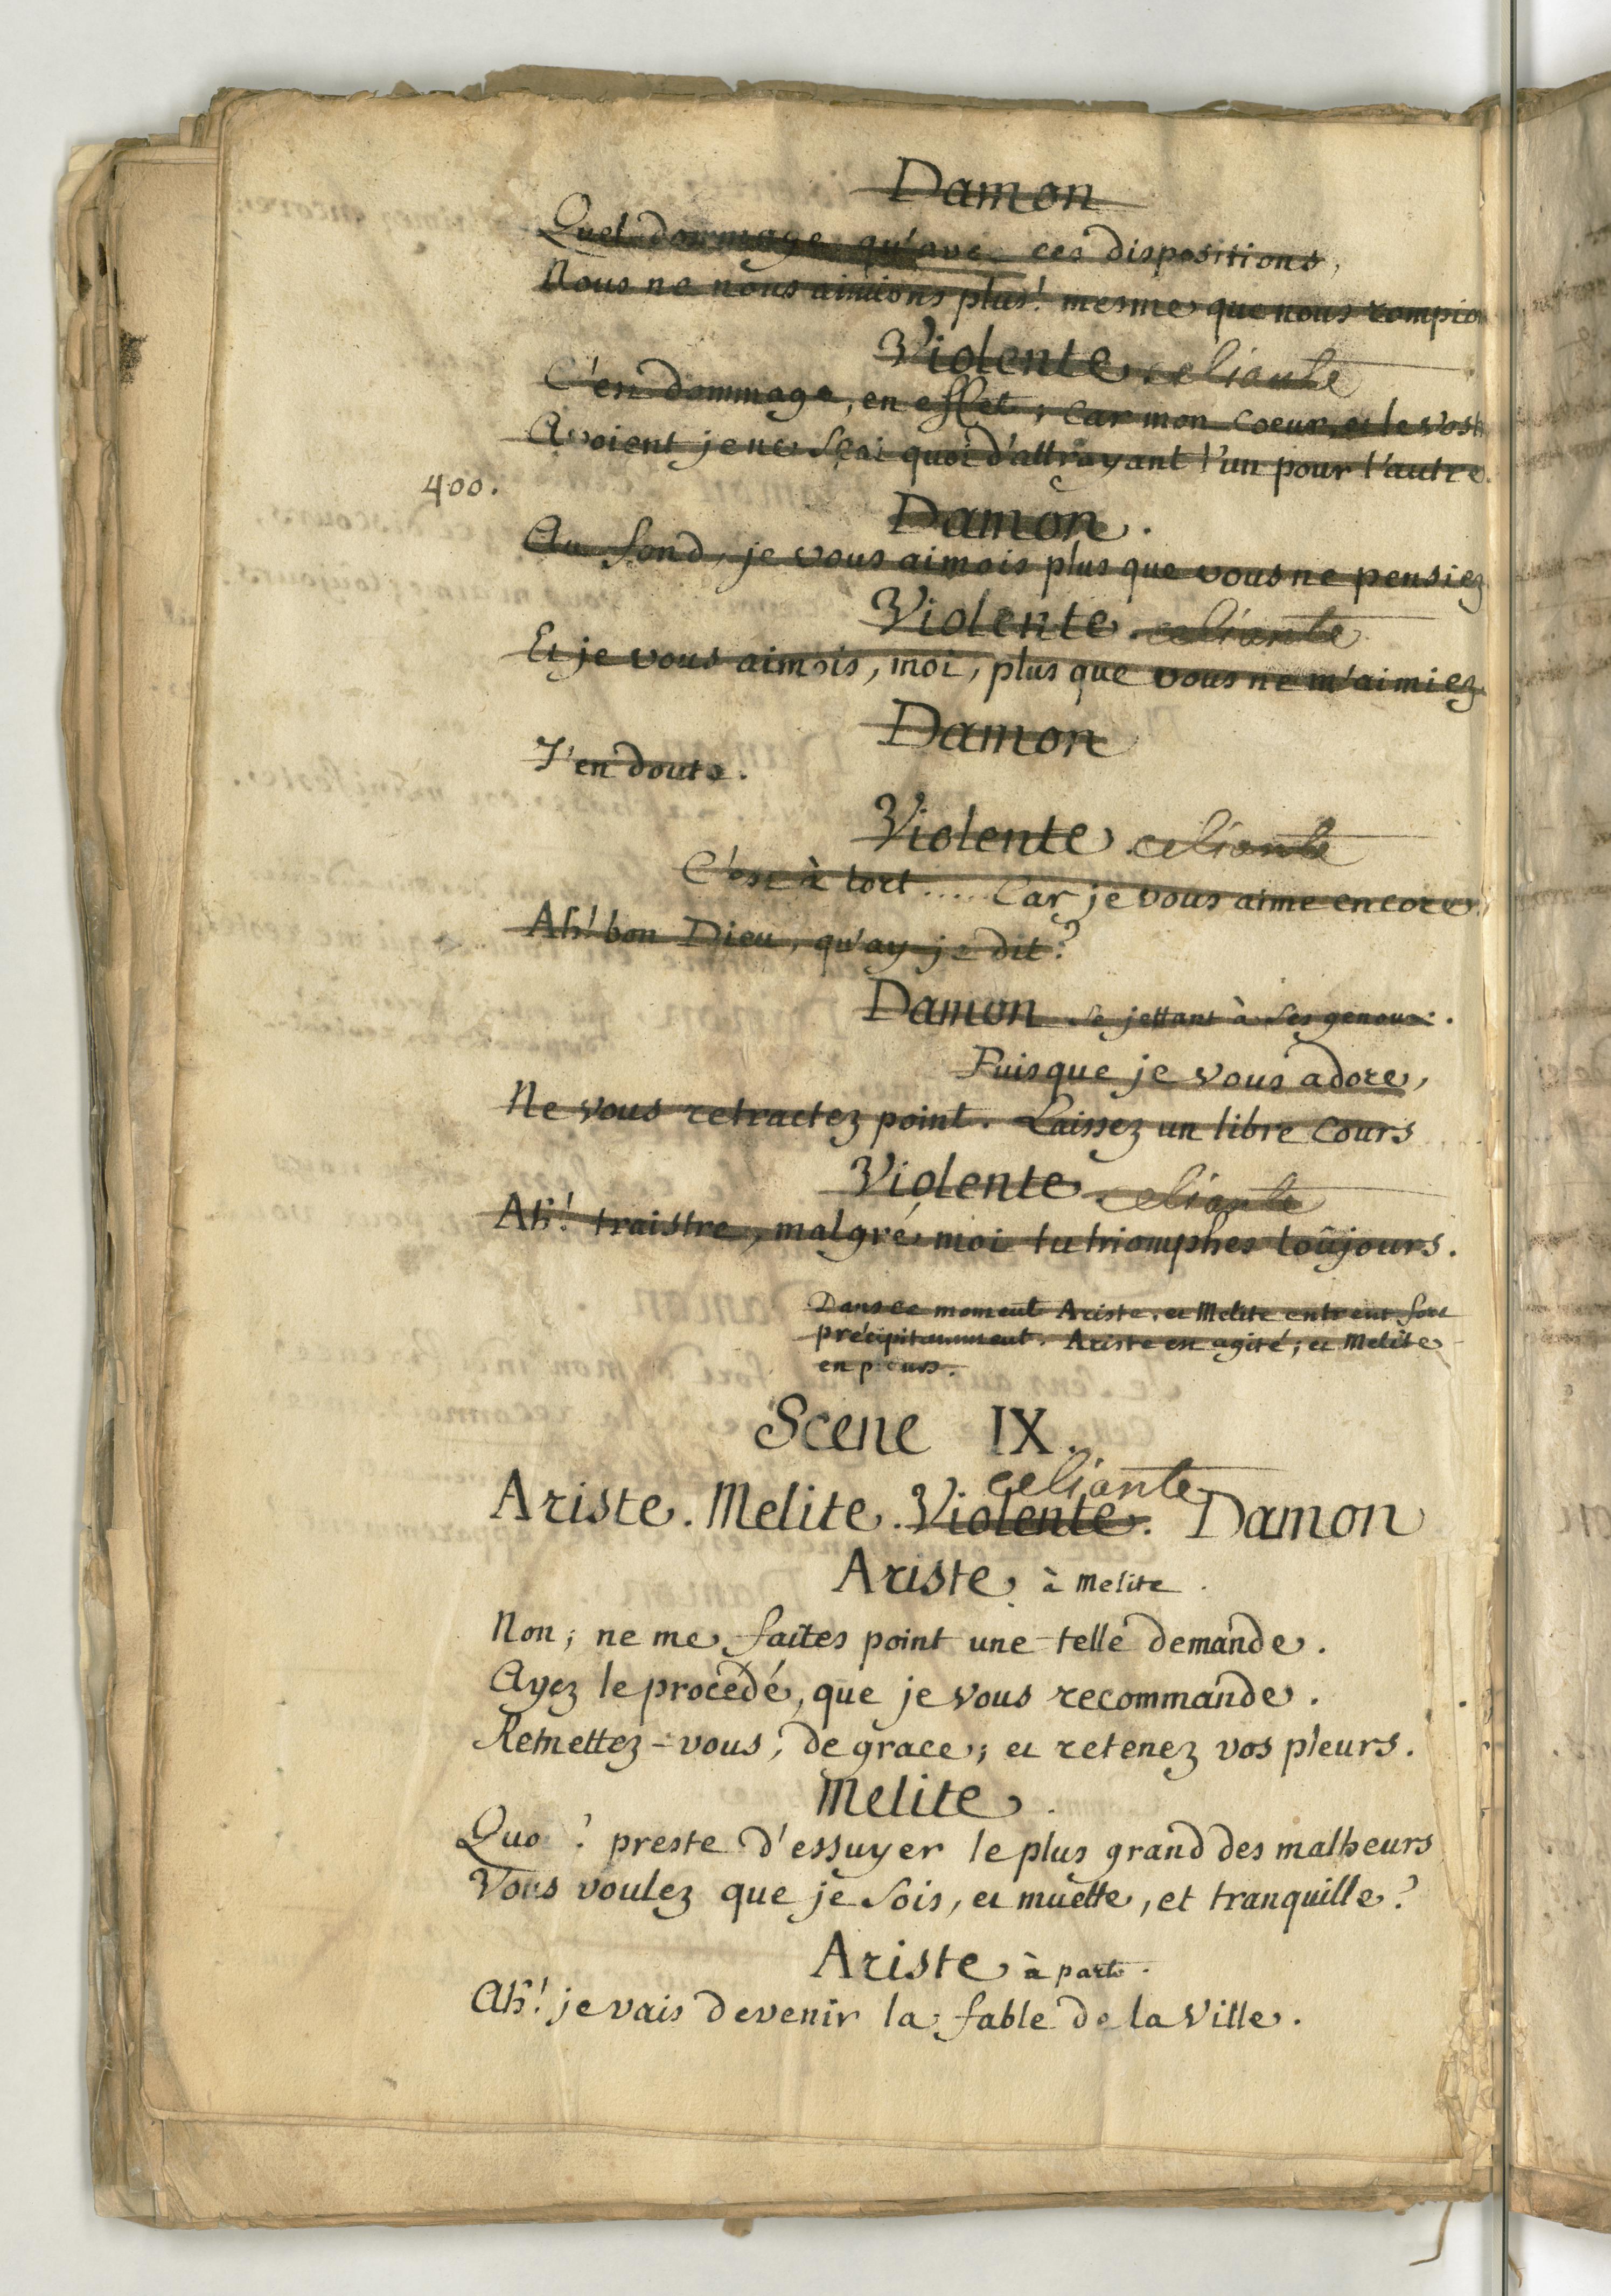 Damon
Quel dommage qu'avec ces dispositions,
Nous ne nous aimions plus! mesme que nous rompio
Violente celiante
C'est dommage, en effet; Car mon Coeur, et le vost
Avoient je ne sçai quoi d'attrayant l'un pour l'autre.
400.
Damon.
Au fond, je vous aimois plus que vous ne pensiez
Violente celiante
Et je vous aimois, moi, plus que vous ne m'aimiez
Damon
J'en doute.
Violente celiante
C'est à tort..... Car je vous aime encore.
Ah! bon Dieu, qu'ay-je dit?
Damon se jettant à ses genoux.
Puisque je vous adore,
Ne vous retractez point. Laissez un libre Cours
Violente celiante
Ah! traistre, malgré moi tu triomphes toûjours.
Dans ce moment Ariste, et Melite entrent fort
précipitamment. Ariste est agité; et Melite
en pleurs.
Scene IX.
Ariste. Melite. Violente. celiante Damon
Ariste, à Melite.
Non; ne me faites point une telle demande.
Ayez le procédé, que je vous recommande.
Remettez-vous, de grace; et retenez vos pleurs.
Melite.
Quoi? preste d'essuyer le plus grand des malheurs
Vous voulez que je sois, et muette, et tranquille?
Ariste à part.
Ah! je vais devenir la fable de la Ville.